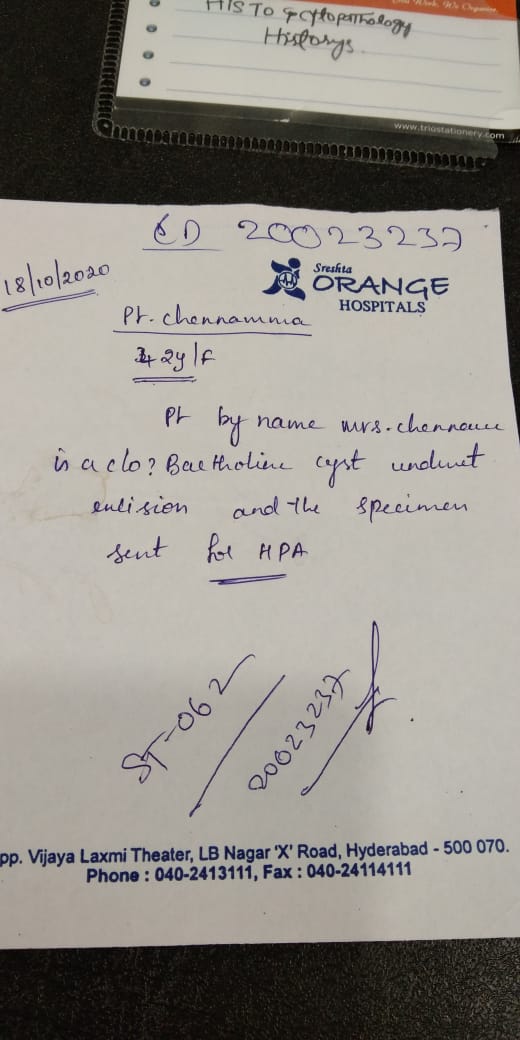 HISTO & cytopathology
Historys.
www.triostationery.com
CD 20023237
18/10/2020
Sreshta
ORANGE
HOSPITALS
Pt. chennamma
42y/F
Pt by name mrs. chennamma
is a c/o ? Bartholine cyst undwnt
excision and the specimen
sent for HPA
ST-062
20023237
pp. Vijaya Laxmi Theater, LB Nagar 'X' Road, Hyderabad - 500 070.
Phone : 040-2413111, Fax : 040-24114111